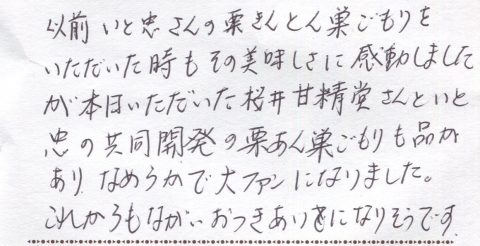 以前いと忠さんの栗きんとん巣ごもりを
いただいた時もその美味しさに感動しました
が本日いただいた桜井甘精堂さんといと
忠の共同開発の栗あん巣ごもりも品が
あり、なめらかで大ファンになりました。
これからもながいおつきあいをになりそうです